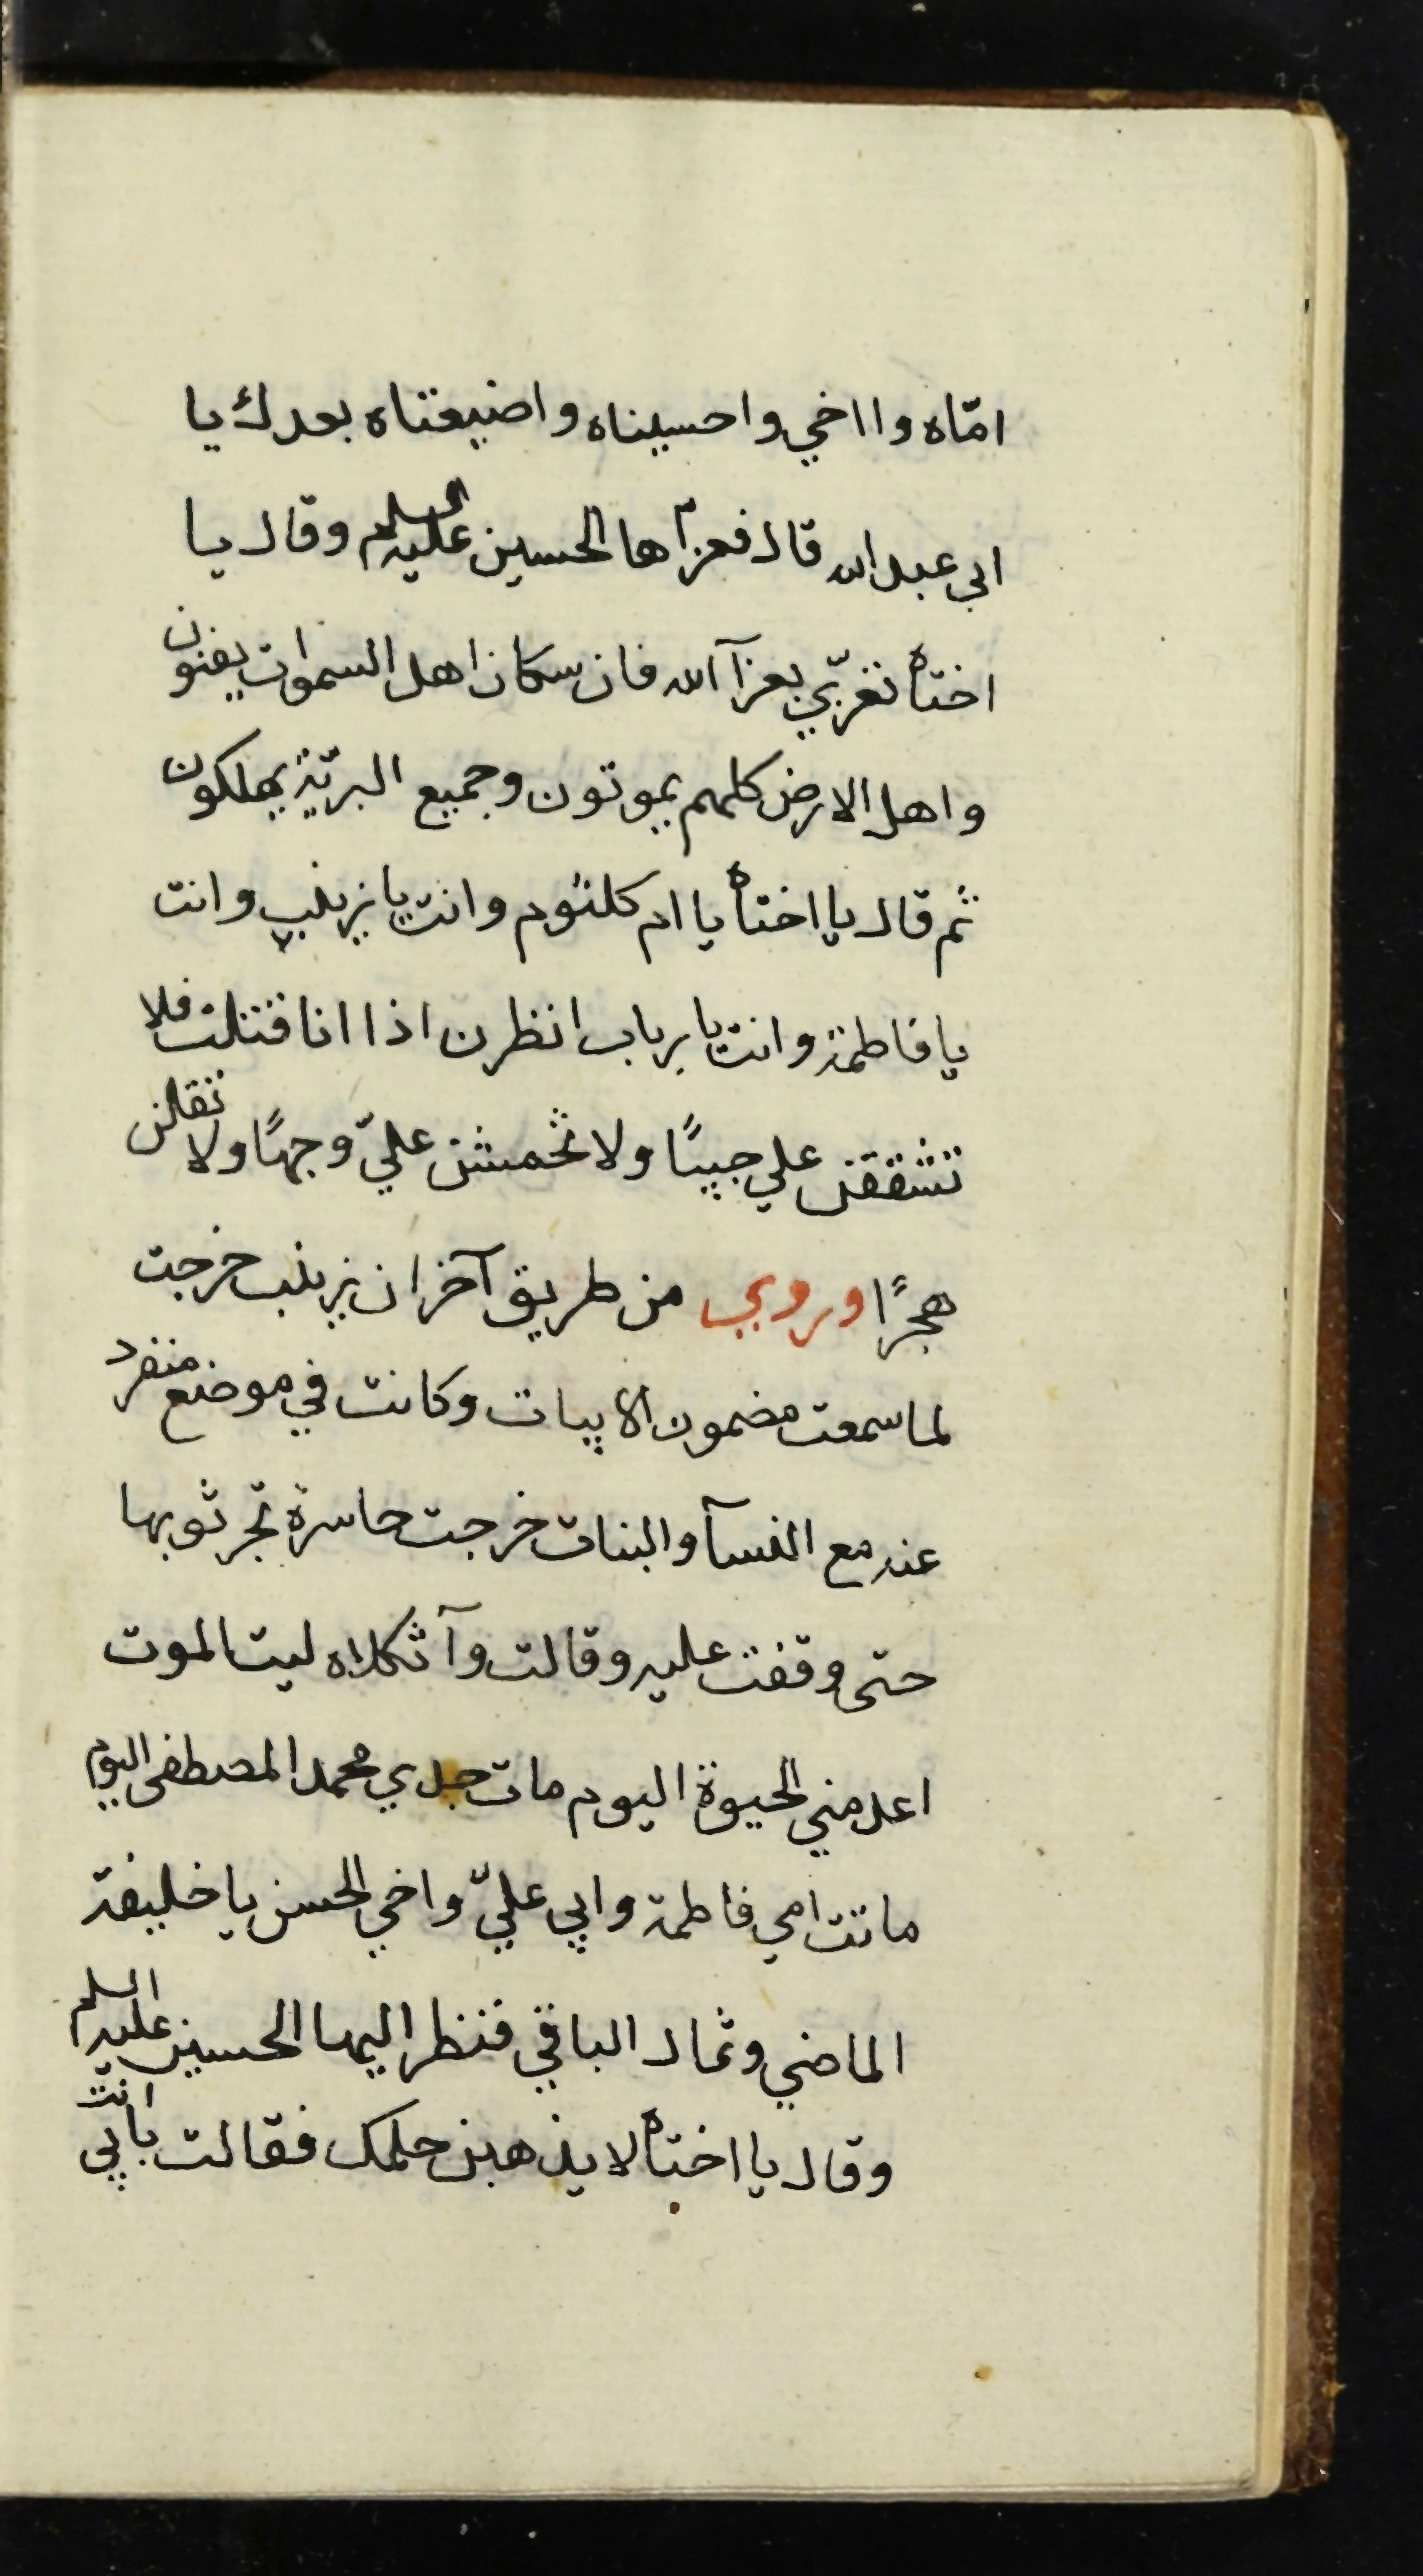 امّاه وا اخي واحسيناه واضيعتاه بعدك يا
ابي عبدالله قال فعزّاها الحسين عليه السلم وقال يا
اختاه تغربّي بعزآ الله فان سكان اهل السموات يفنون
واهل الارض كلهم يموتون وجميع البريّة يهلكون
ثم قال يا اختاه يا ام كلثوم وانت يا زينب وانت
يا فاطمة وانت يا رباب انظرن اذا انا قتلت فلا
تشققن علي جيبًا ولا تخمشن عليّ وجهًا ولا تقلن
هجرًا وروي من طريق آخر ان زينب خرجت
لما سمعت مضمون الابيات وكانت في موضع منفرد
عنه مع النسآ والبنات خرجت حاسرة تجر ثوبها
حتى وقفت عليه وقالت وآ ثكلاه ليت الموت
اعدمني الحيوة اليوم مات جدي محمد المصطفى اليوم
ماتت امي فاطمة وابي عليّ واخي الحسن يا خليفة
الماضي وثمال الباقي فنظر اليها الحسين عليه السلم
وقال يا اختاه لا يذهبن حلمك فقالت بابي انت